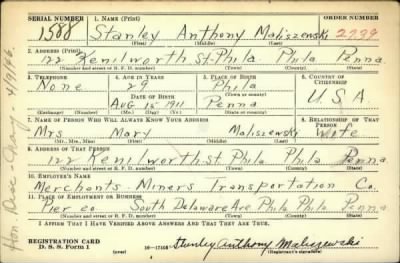 SERIAL NUMBER 1. NAME (Print) ORDER NUMBER
1588 Stanley Anthony Maliszewski 2799
(First) (Middle) (Last)
2. ADDRESS (Print)
122 Kenilworth St. Phila Phila Penna
(Number and street or R. F. D. number) (Town) (County) (State)
3. TELEPHONE 4. AGE IN YEARS 5. PLACE OF BIRTH 6. COUNTRY OF CITIZENSHIP
None 29 Phila
DATE OF BIRTH U.S.A
Aug 15 1911 Penna
(Mo.) (Day) (Yr.)
7. NAME OF PERSON WHO WILL ALWAYS KNOW YOUR ADDRESS 8. RELATIONSHIP OF THAT PERSON
Mrs Mary Maliszewski Wife
(Mr., Mrs., Miss) (First) (Middle) (Last)
9. ADDRESS OF THAT PERSON
122 Kenilworth St. Phila Phila Penna
(Number and street or R. F. D. number) (Town) (County) (State)
10. EMPLOYER'S NAME
Merchants - Miners Transportation Co.
11. PLACE OF EMPLOYMENT OR BUSINESS
Pier 20 South Delaware Ave Phila Phila Penna
(Number and street or R. F. D. number) (Town) (County) (State)
I AFFIRM THAT I HAVE VERIFIED ABOVE ANSWERS AND THAT THEY ARE TRUE.
REGISTRATION CARD
D. S. S. Form 1 (over) 16—17105 Stanley Anthony Maliszewski
(Registrant's signature)
Hon. Disc - 4/9/46